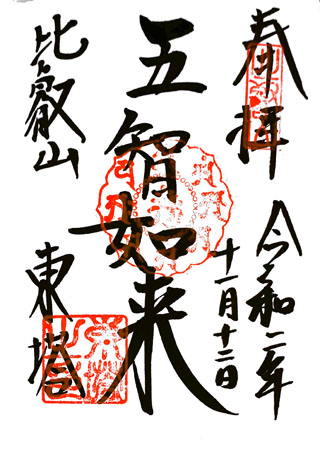 奉拝
令和二年
十一月十二日
五智如来
比叡山
東塔